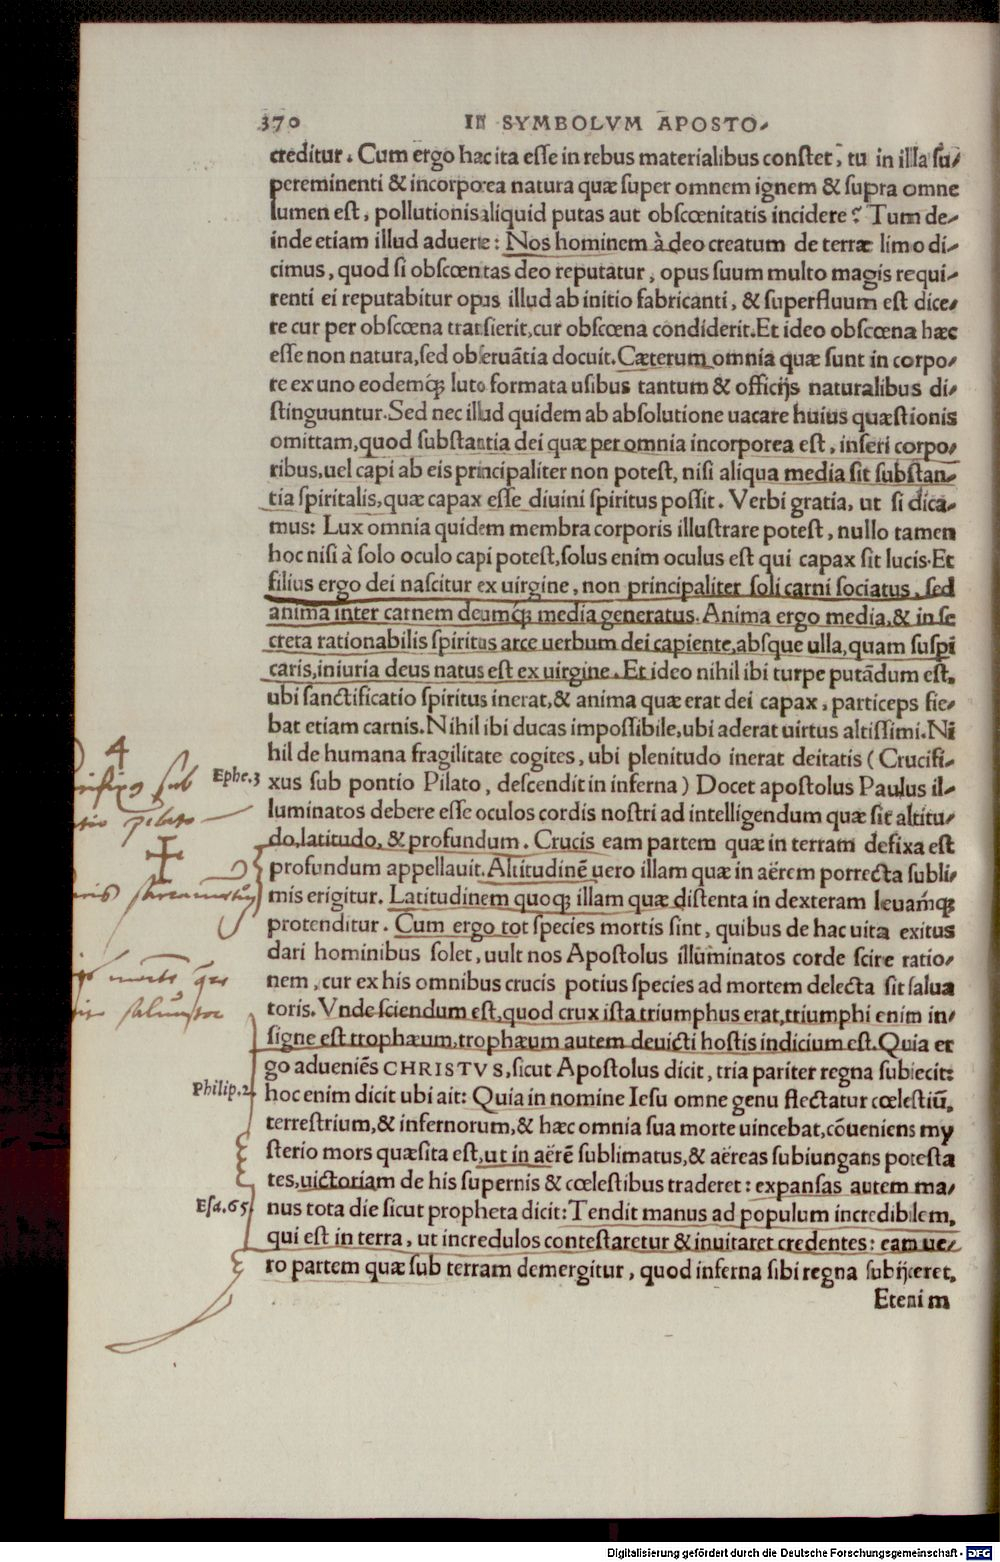 370 IN SYMBOLVM APOSTO-
creditur. Cum ergo hæc ita esse in rebus materialibus constet, tu in illa su-
pereminenti & incorporea natura quæ super omnem ignem & supra omne
lumen est, pollutionis aliquid putas aut obscœnitatis incidere? Tum de-
inde etiam illud aduerte: Nos hominem à deo creatum de terræ limo di-
cimus, quod si obscœnitas deo reputatur, opus suum multo magis requi-
renti ei reputabitur opus illud ab initio fabricanti, & superfluum est dice-
re cur per obscœna transierit, cur obscœna condiderit. Et ideo obscœna hæc
esse non natura, sed obseruãtia docuit. Cæterum omnia quæ sunt in corpo-
re ex uno eodemq́ꝫ luto formata usibus tantum & officijs naturalibus di-
stinguuntur. Sed nec illud quidem ab absolutione uacare huius quæstionis
omittam, quod substantia dei quæ per omnia incorporea est, inseri corpo-
ribus, uel capi ab eis principaliter non potest, nisi aliqua media sit substan-
tia spiritalis, quæ capax esse diuini spiritus possit. Verbi gratia, ut si dica-
mus: Lux omnia quidem membra corporis illustrare potest, nullo tamen
hoc nisi à solo oculo capi potest, solus enim oculus est qui capax sit lucis. Et
filius ergo dei nascitur ex uirgine, non principaliter soli carni sociatus, sed
anima inter carnem deumq́ꝫ media generatus. Anima ergo media, & in se
creta rationabilis spiritus arce uerbum dei capiente, absque ulla, quam suspi
caris, iniuria deus natus est ex uirgine. Et ideo nihil ibi turpe putãdum est,
ubi sanctificatio spiritus inerat, & anima quæ erat dei capax, particeps fie-
bat etiam carnis. Nihil ibi ducas impossibile, ubi aderat uirtus altissimi. Ni
hil de humana fragilitate cogites, ubi plenitudo inerat deitatis (Crucifi-
4
sub
Ephe.3
xus sub pontio Pilato, descendit in inferna) Docet apostolus Paulus il-
luminatos debere esse oculos cordis nostri ad intelligendum quæ sit altitu-
pilato
do, latitudo, & profundum. Crucis eam partem quæ in terram defixa est
profundum appellauit. Altitudinẽ uero illam quæ in aërem porrecta subli-
mis erigitur. Latitudinem quoqꝫ illam quæ distenta in dexteram leuamq́ꝫ
protenditur. Cum ergo tot species mortis sint, quibus de hac uita exitus
dari hominibus solet, uult nos Apostolus illuminatos corde scire ratio-
nem, cur ex his omnibus crucis potius species ad mortem delecta sit salua
toris. Vnde sciendum est, quod crux ista triumphus erat, triumphi enim in-
signe est trophæum, trophæum autem deuicti hostis indicium est. Quia er
go adueniẽs CHRISTVS, sicut Apostolus dicit, tria pariter regna subiecit:
Philip.2.
hoc enim dicit ubi ait: Quia in nomine Iesu omne genu flectatur cœlestiũ,
terrestrium, & infernorum, & hæc omnia sua morte uincebat, cõueniens my
sterio mors quæsita est, ut in aërẽ sublimatus, & aëreas subiungans potesta
tes, uictoriam de his supernis & cœlestibus traderet: expansas autem ma-
Esa.65.
nus tota die sicut propheta dicit: Tendit manus ad populum incredibilem,
qui est in terra, ut incredulos contestaretur & inuitaret credentes: eam ue-
ro partem quæ sub terram demergitur, quod inferna sibi regna subijceret.
Etenim
Digitalisierung gefördert durch die Deutsche Forschungsgemeinschaft - DFG